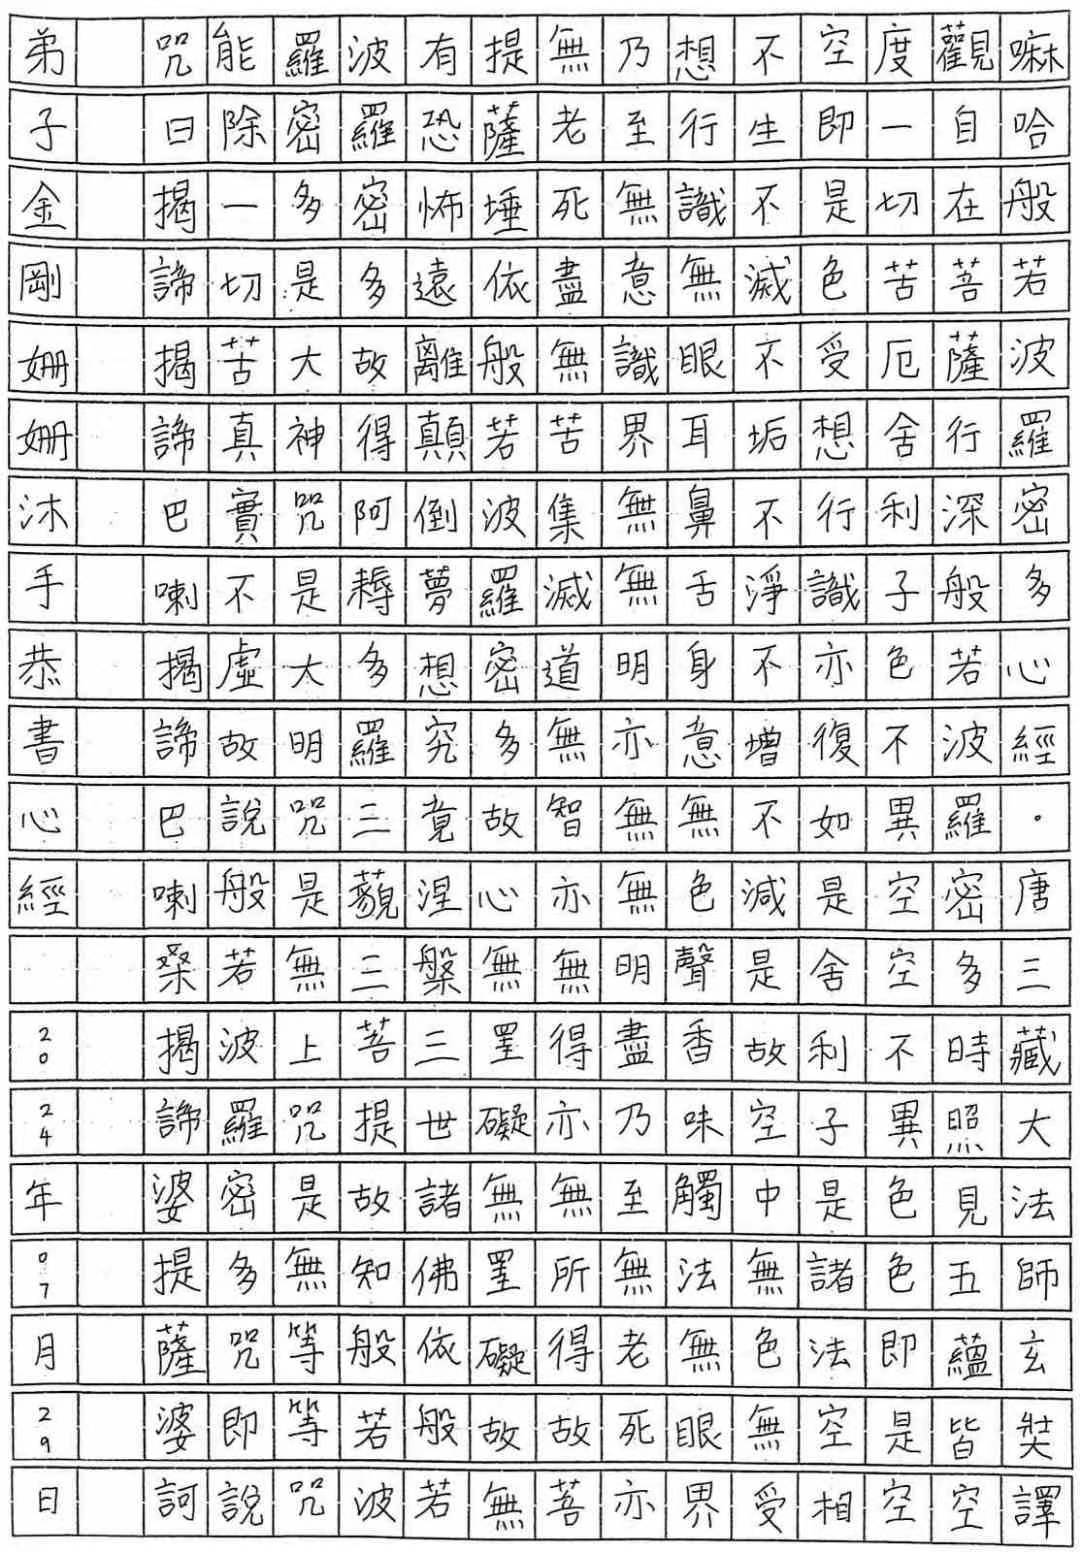 嘛哈般若波羅密多心經。唐三藏大法師玄奘譯
觀自在菩薩行深般若波羅密多時照見五蘊皆空
度一切苦厄舍利子色不異空空不異色色即是空
空即是色受想行識亦復如是舍利子是諸法空相
不生不滅不垢不淨不增不減是故空中無色無受
想行識無眼耳鼻舌身意無色聲香味觸法無眼界
乃至無意識界無無明亦無無明盡乃至無老死亦
無老死盡無苦集滅道無智亦無得亦無所得故菩
提薩埵依般若波羅密多故心無罣礙無罣礙故無
有恐怖遠離顛倒夢想究竟涅槃三世諸佛依般若
波羅密多故得阿耨多羅三藐三菩提故知般若波
羅密多是大神咒是大明咒是無上咒是無等等咒
能除一切苦真實不虛故說般若波羅密多咒即說
咒曰揭諦揭諦巴喇揭諦巴喇桑揭諦婆提薩婆訶
弟子金剛姍姍沐手恭書心經 2024年07月29日